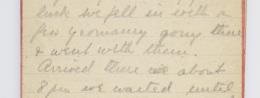 luck we fell in with a
few yeomanry going there
& went with them.
Arrived there at about
8 pm we waited until